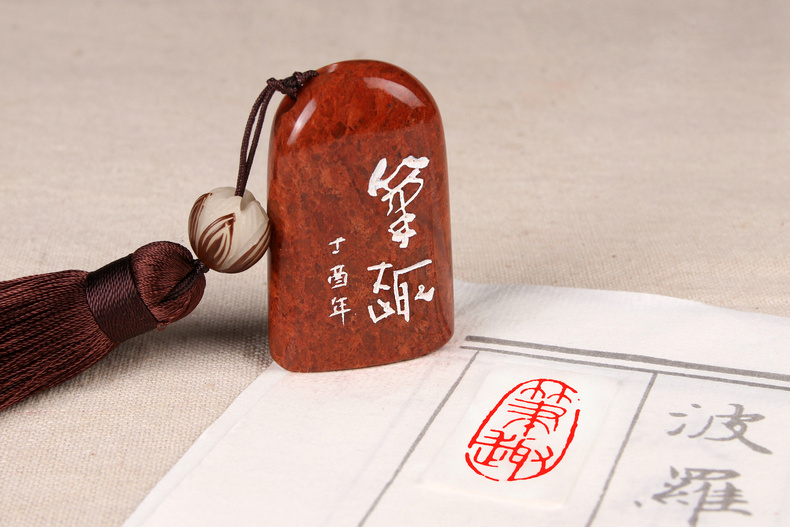 筆趣
丁酉年
筆趣
波羅